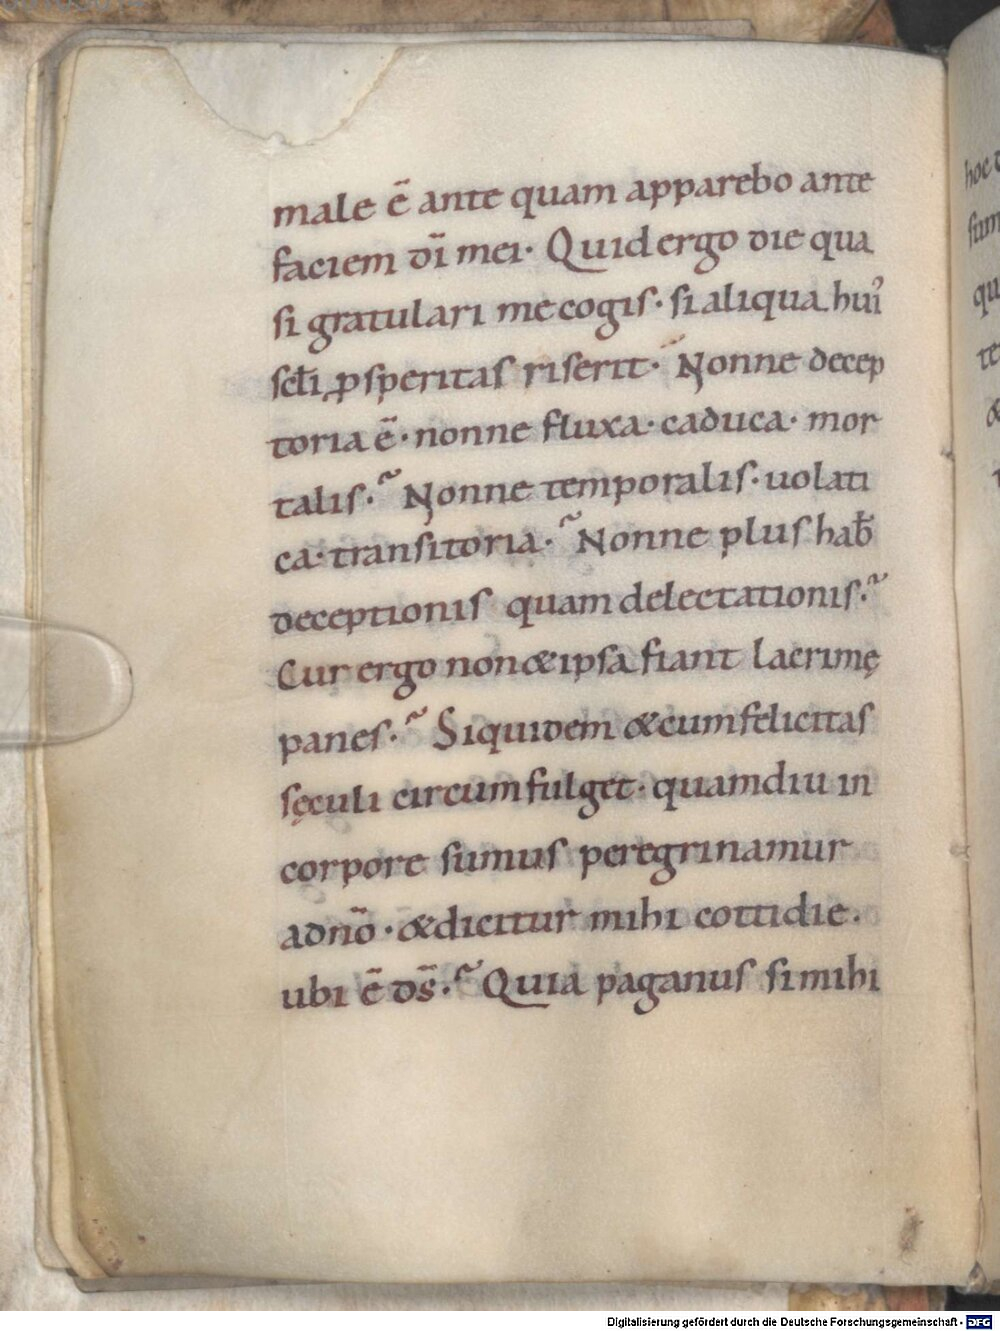 male ē ante quam apparebo ante
faciem dī mei· Quid ergo die qua
si gratulari me cogis· si aliqua hui᾽
scl̄i ꝓsperitas riserit· Nonne decep
toria ē· nonne fluxa· caduca· mor
talis·~ Nonne temporalis· uolati
ca· transitoria·~ Nonne plus hab̄
deceptionis quam delectationis·~
Cur ergo non & ipsa fiant lacrimę
panes·~ Siquidem & cum felicitas
sęculi circumfulget· quamdiu in
corpore sumus peregrinamur
adn̄o· & dicitur mihi cottidie·
ubi ē ds̄·~ Quia paganus si mihi
hoc
Digitalisierung gefördert durch die Deutsche Forschungsgemeinschaft - DFG